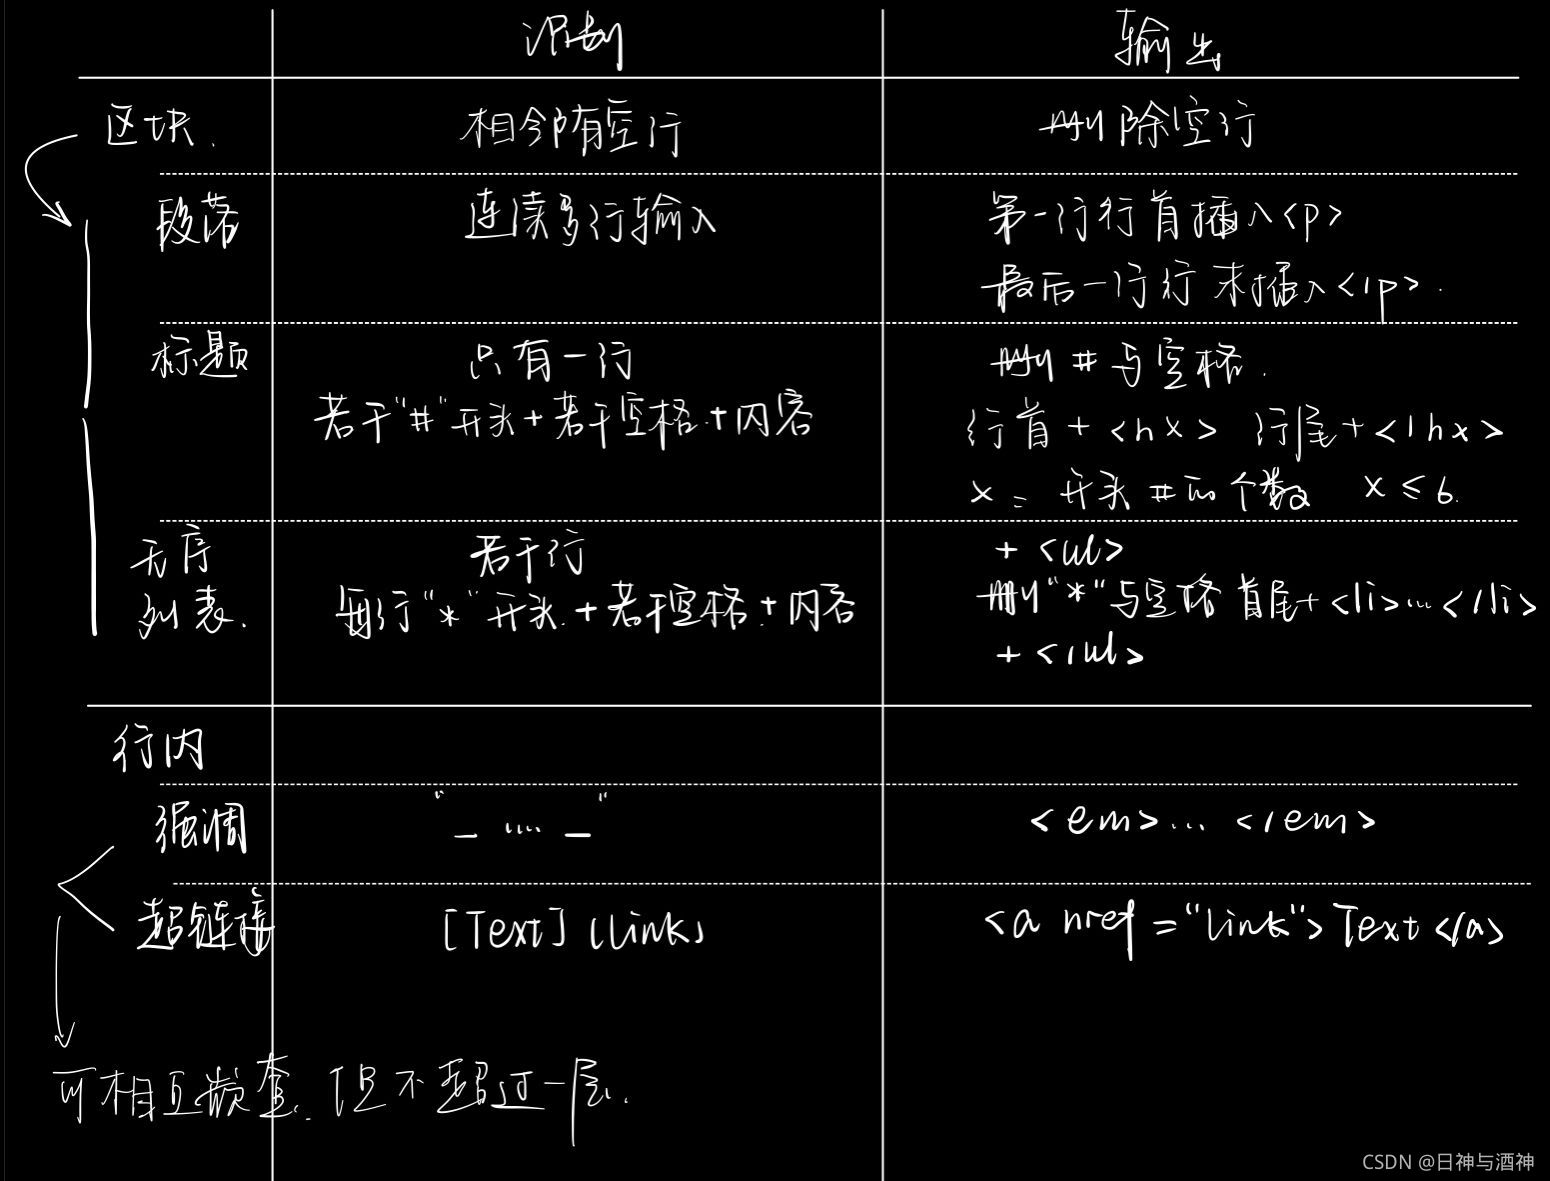 识别 输出
区块. 相邻有空行 删除空行
段落 连续多行输入 第一行行首插入<p>
最后一行行末插入</p>.
标题 只有一行 删 # 与空格.
若干"#"开头+若干空格+内容 行首+<hx> 行尾+</hx>
x = 开头#的个数 x≤6.
无序 若干行 +<ul>
列表. 每行"*"开头.+若干空格+内容 删"*"与空格 首尾+<li>...</li>
+</ul>
行内
强调 "_ .... _" <em>...</em>
超链接 [Text](link) <a href="link">Text</a>
可相互嵌套.但不超过一层.
CSDN @日神与酒神